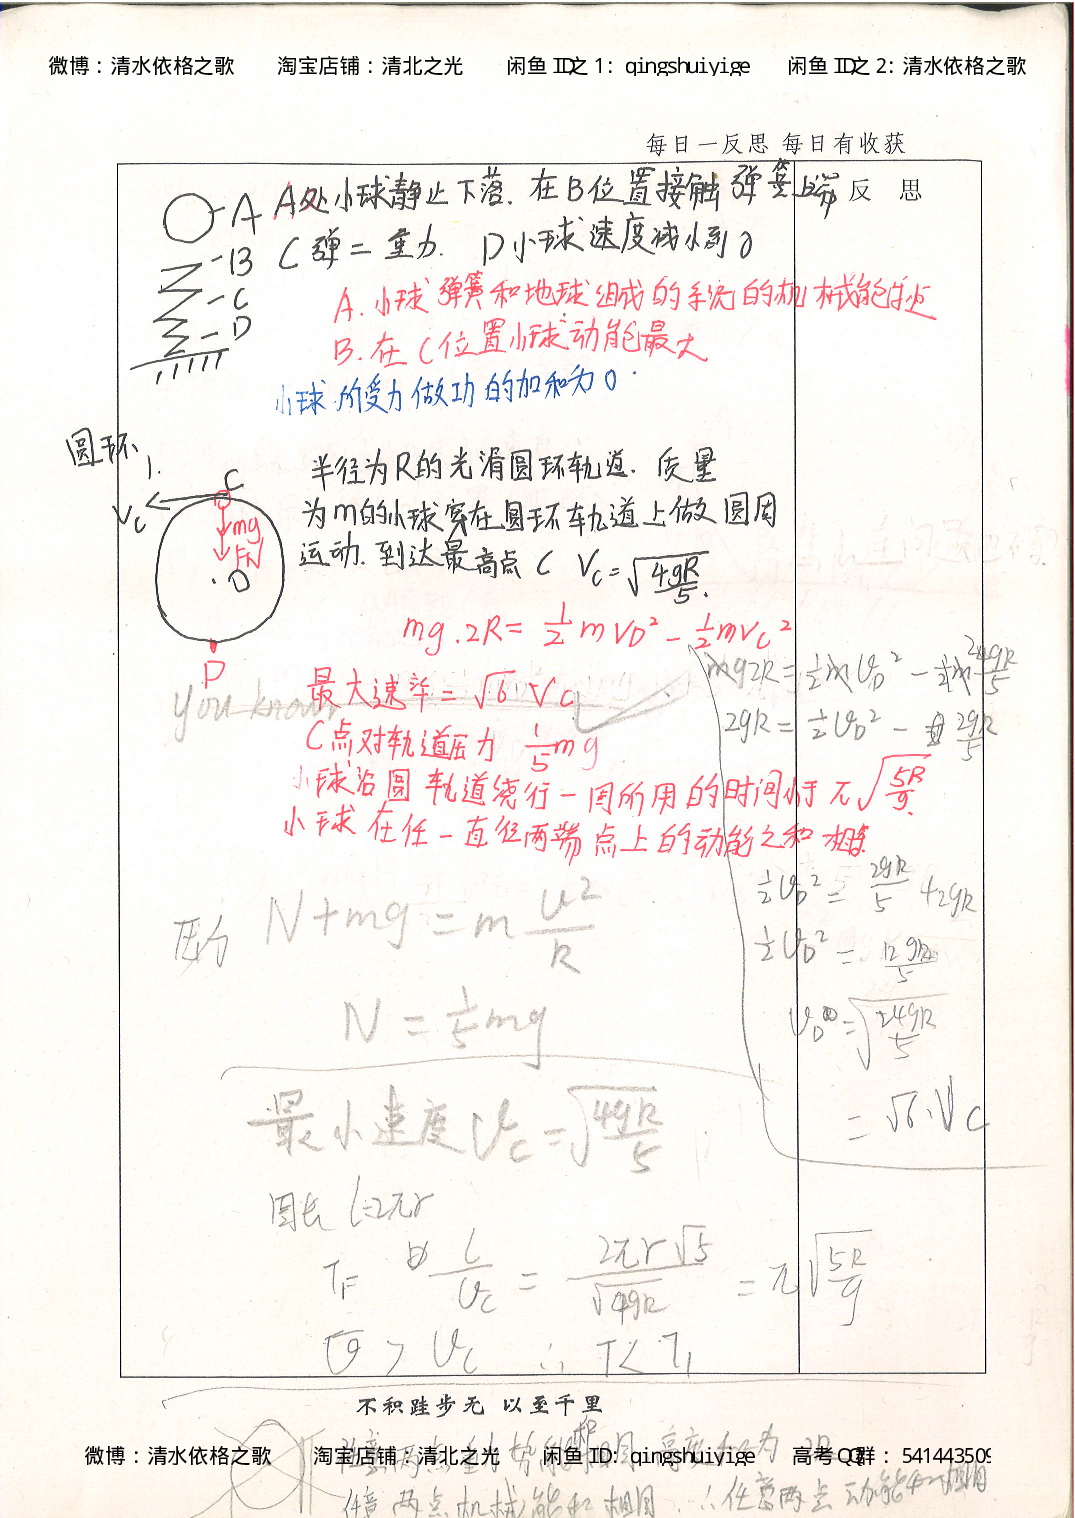 微博：清水依格之歌 淘宝店铺：清北之光 闲鱼 ID之 1: qingshuiyige 闲鱼 ID之 2: 清水依格之歌
每日一反思 每日有收获
反 思
A A处小球静止下落. 在B位置接触弹簧上端
B C弹=重力. D小球速度减小到0
C A.小球弹簧和地球组成的系统的机械能守恒
D B.在C位置小球动能最大
小球所受力做功的加和为0.
圆环
1. 半径为R的光滑圆环轨道. 质量
C
Vc mg 为m的小球穿在圆环轨道上做圆周
FN 运动. 到达最高点C Vc=√(4gR/5).
O
mg.2R=½mVD²-½mVc²
D
最大速率=√6 Vc
you know
C点对轨道压力 1/5mg
小球沿圆轨道绕行一周所用的时间小于π√(5R/g).
小球在任一直径两端点上的动能之和相等
mg2R=½mVD²-½m4gR/5
2gR=½VD²-2gR/5
½VD²=2gR/5+2gR
½VD²=12gR/5
VD=√(24gR/5)
=√6.Vc
压力 N+mg=m v²/R
N=1/5mg
最小速度Vc=√(4gR/5)
周长 l=2πr
T= l/Vc = 2πr√5/√4gR = π√(5R/g)
> Vc ∴ T<T₁
不积跬步无 以至千里
微博：清水依格之歌 淘宝店铺：清北之光 闲鱼 ID: qingshuiyige 高考QQ群： 541443509
任意两点重力势能和相同 高度加和为2R
任意两点机械能和相同 ∴任意两点动能和相同